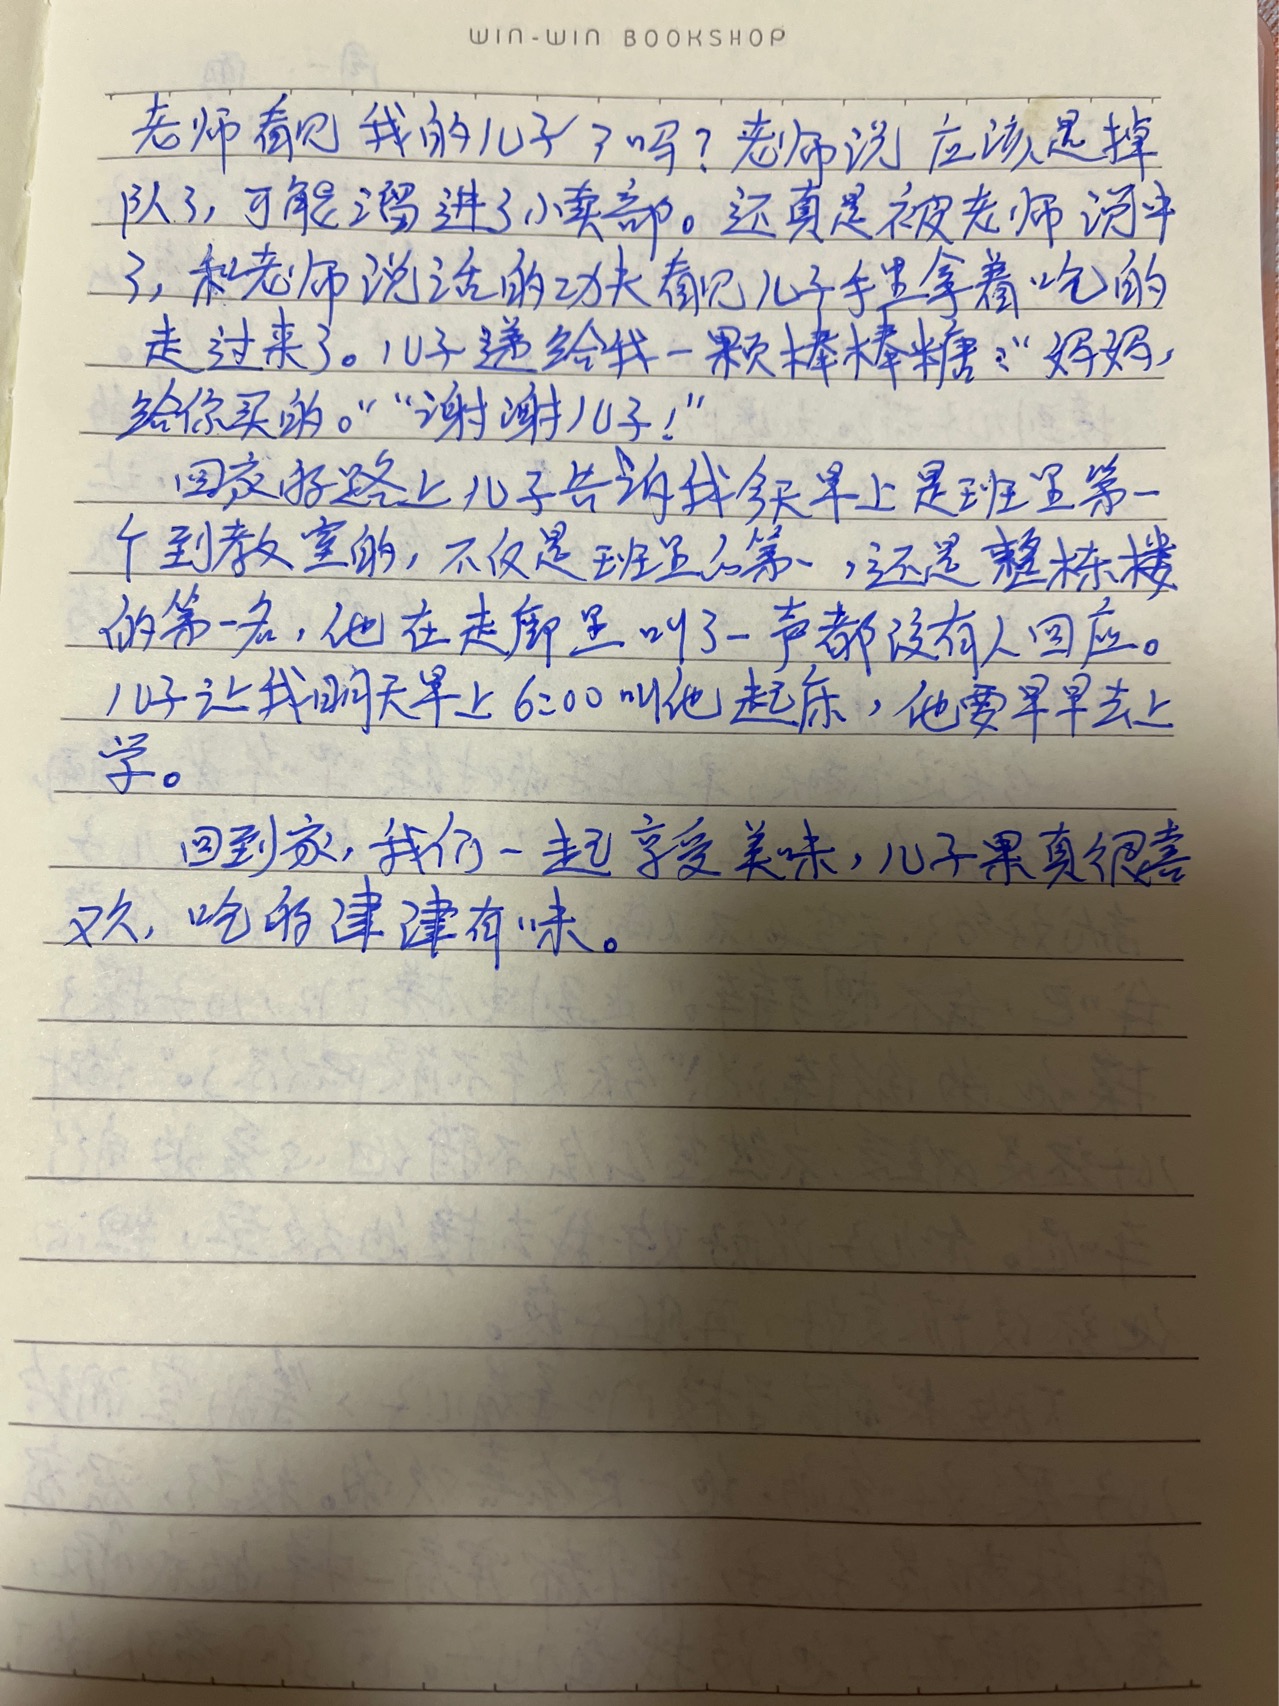 WIN-WIN BOOKSHOP
老师看见我的儿子了吗？老师说应该是掉
队了，可能溜进了小卖部。还真是被老师说中
了，和老师说话的功夫看见儿子手里拿着吃的
走过来了。儿子递给我一颗棒棒糖：“妈妈，
给你买的。”“谢谢儿子！”
回家的路上儿子告诉我今天早上是班里第一
个到教室的，不仅是班里的第一，还是整栋楼
的第一名，他在走廊里叫了一声都没有人回应。
儿子让我明天早上6:00叫他起床，他要早早去上
学。
回到家，我们一起享受美味，儿子果真很喜
欢，吃的津津有味。